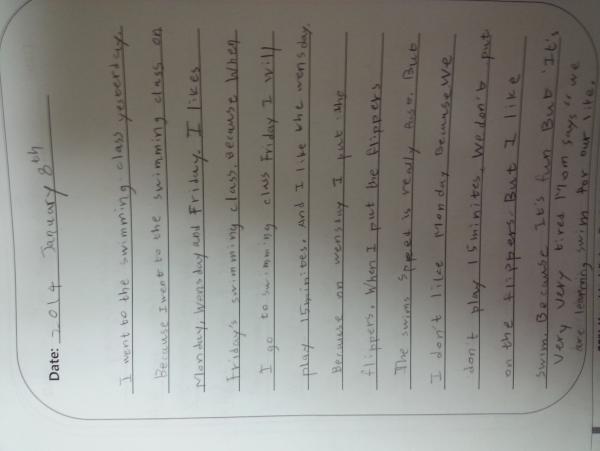 Date: 2014 January 8th
I went to the swimming class yesterday.
Because I went to the swimming class on
Monday, Wensday and Friday. I likes
Friday's swimming class, Because When
I go to swimming class Friday I will
play 15minites. And I like the wensday.
Because on wensday I put the
flippers. When I put the flippers
The swims speed is really fast. But
I don't like Monday Because We
don't play 15minites, We don't put
on the flippers. But I like
swim. Because It's fun But It's
very very tired Mom says " we
are learning swim for our life.